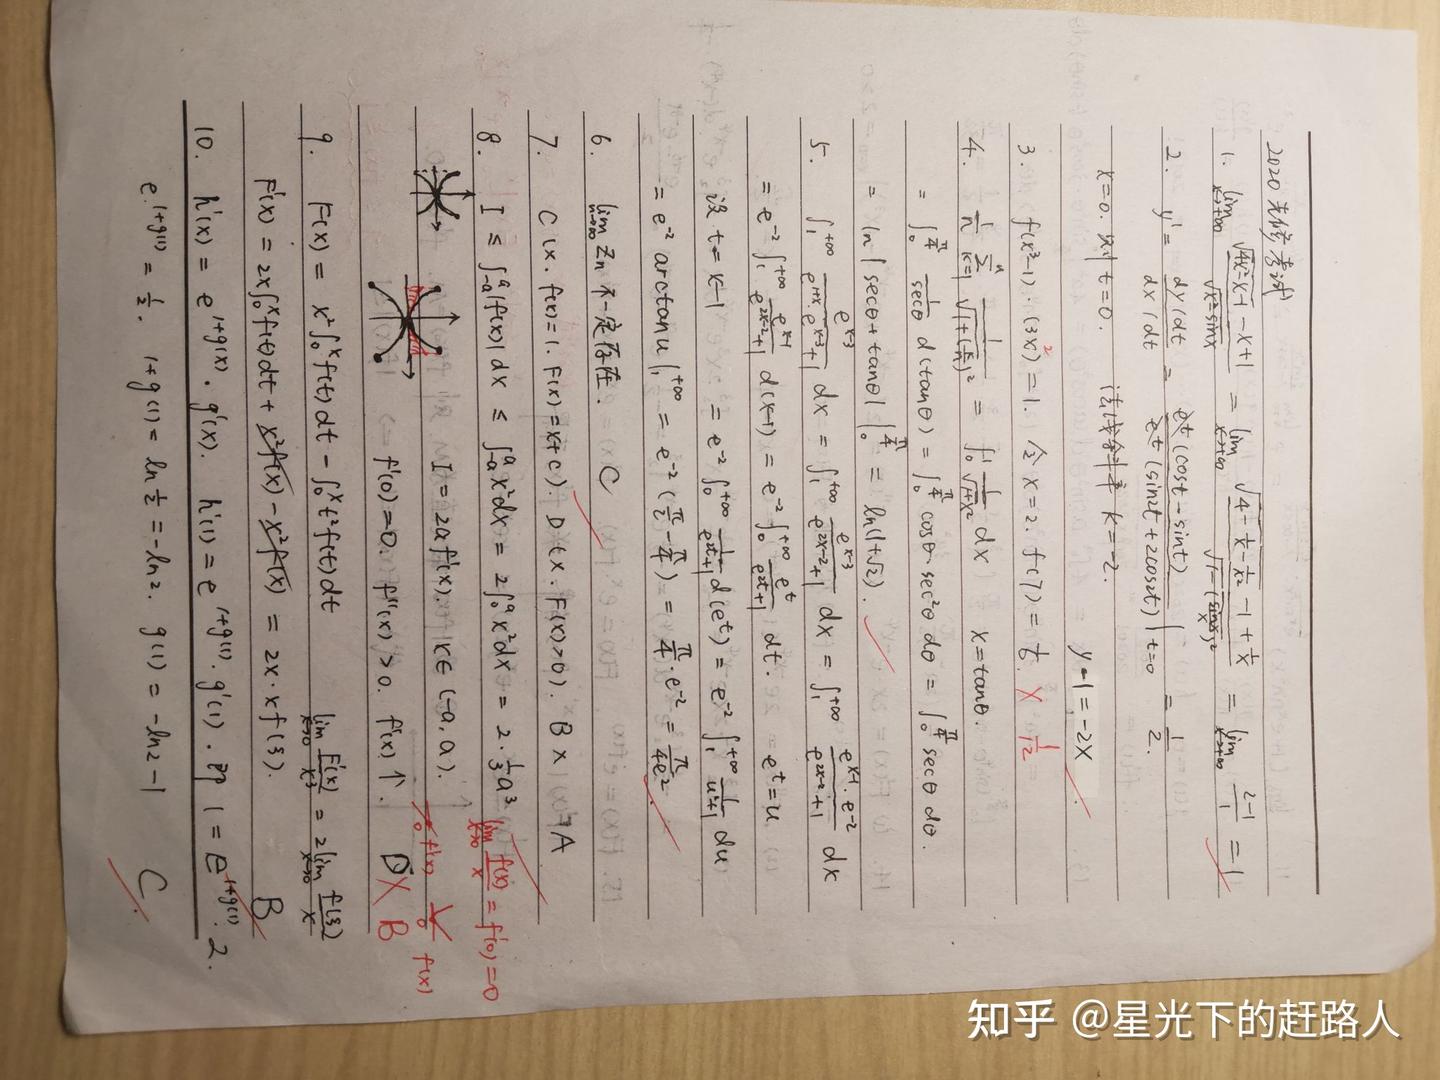 2020 先修考试
1. lim x→+∞ (√(4x²-x-1) - x + 1) / √(x²+sinx) = lim x→+∞ (√(4 - 1/x - 1/x²) - 1 + 1/x) / √(1-(sinx/x)²) = lim x→+∞ (2-1)/1 = 1
2. y' = (dy/dt)/(dx/dt) = e^t(cost-sint) / e^t(sin2t+2cos2t) | t=0 = 1/2.
x=0. 则 t=0. 法线斜率 k=-2. y-1=-2x
3. f'(x³-1)·(3x²)=1. 令 x=2. f'(7)=1/6. X 1/12
4. 1/n Σ k=1 n 1/√(1+(k/n)²) = ∫₀¹ 1/√(1+x²) dx x=tanθ.
= ∫₀^(π/4) 1/secθ d(tanθ) = ∫₀^(π/4) cosθ·sec²θ dθ = ∫₀^(π/4) secθ dθ.
= ln|secθ+tanθ| |₀^(π/4) = ln(1+√2).
5. ∫₁^(+∞) e^(x-3) / (e^(1+x)·e^(x-3)+1) dx = ∫₁^(+∞) e^(x-3)/(e^(2x-2)+1) dx = ∫₁^(+∞) e^(x-1)·e^(-2)/(e^(2x-2)+1) dx
= e^(-2) ∫₁^(+∞) e^(x-1)/(e^(2x-2)+1) d(x-1) = e^(-2) ∫₀^(+∞) e^t/(e^(2t)+1) dt. e^t=u
设 t=x-1 = e^(-2) ∫₀^(+∞) 1/(e^(2t)+1) d(e^t) = e^(-2) ∫₁^(+∞) 1/(u²+1) du
= e^(-2) arctanu |₁^(+∞) = e^(-2)(π/2 - π/4) = π/4·e^(-2) = π/(4e²).
6. lim n→∞ Zn 不一定存在. C
7. C(x. f(x)=1. F(x)=x+C). D(x. F(x)>0). B x A
8. I ≤ ∫₋ₐ^a |f(x)| dx ≤ ∫₋ₐ^a x²dx = 2∫₀^a x²dx = 2·1/3a³
lim x→0 f(x)/x = f'(0) = 0
I = 2a f(x). x∈(-a, a).
f'(x) f(x)
f'(0)=0. f''(x)>0. f'(x)↑. D X B
9. F(x) = x²∫₀^x f(t)dt - ∫₀^x t²f(t)dt lim x→0 F'(x)/x³ = 2 lim x→0 f(3)/x
F'(x) = 2x∫₀^x f(t)dt + x²f(x) - x²f(x) = 2x·x f(3). B
10. h'(x) = e^(1+g(x))·g'(x). h'(1) = e^(1+g(1))·g'(1). 即 1=e^(1+g(1))·2.
e^(1+g(1)) = 1/2. 1+g(1)=ln1/2=-ln2. g(1)=-ln2-1 C.
知乎 @星光下的赶路人